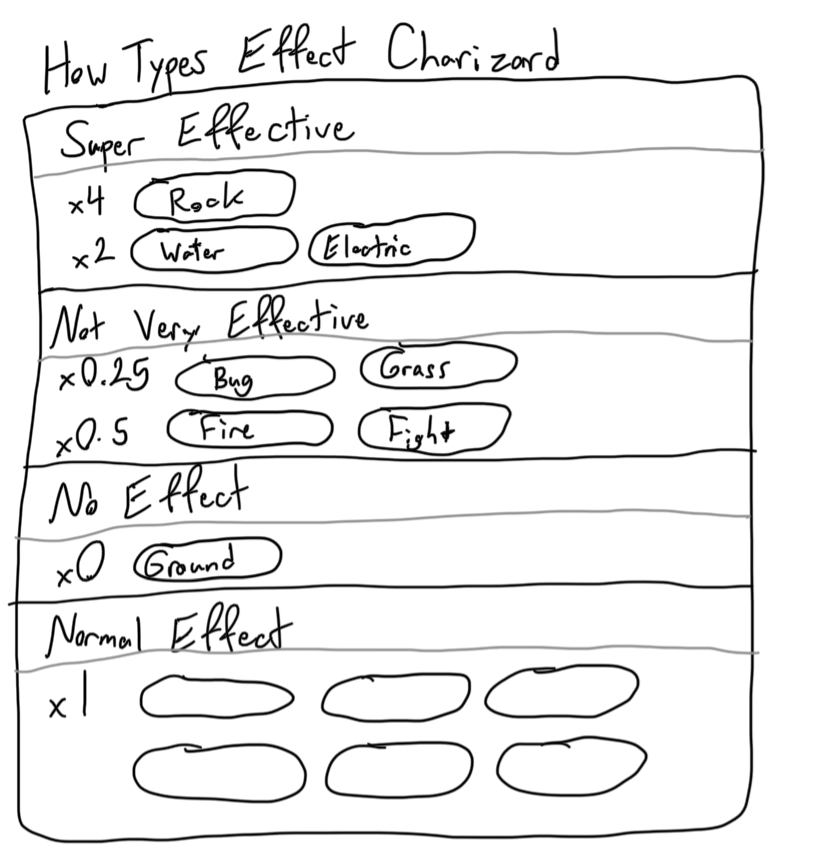 How Types Effect Charizard
Super Effective
x4 Rock
x2 Water Electric
Not Very Effective
x0.25 Bug Grass
x0.5 Fire Fight
No Effect
x0 Ground
Normal Effect
x1